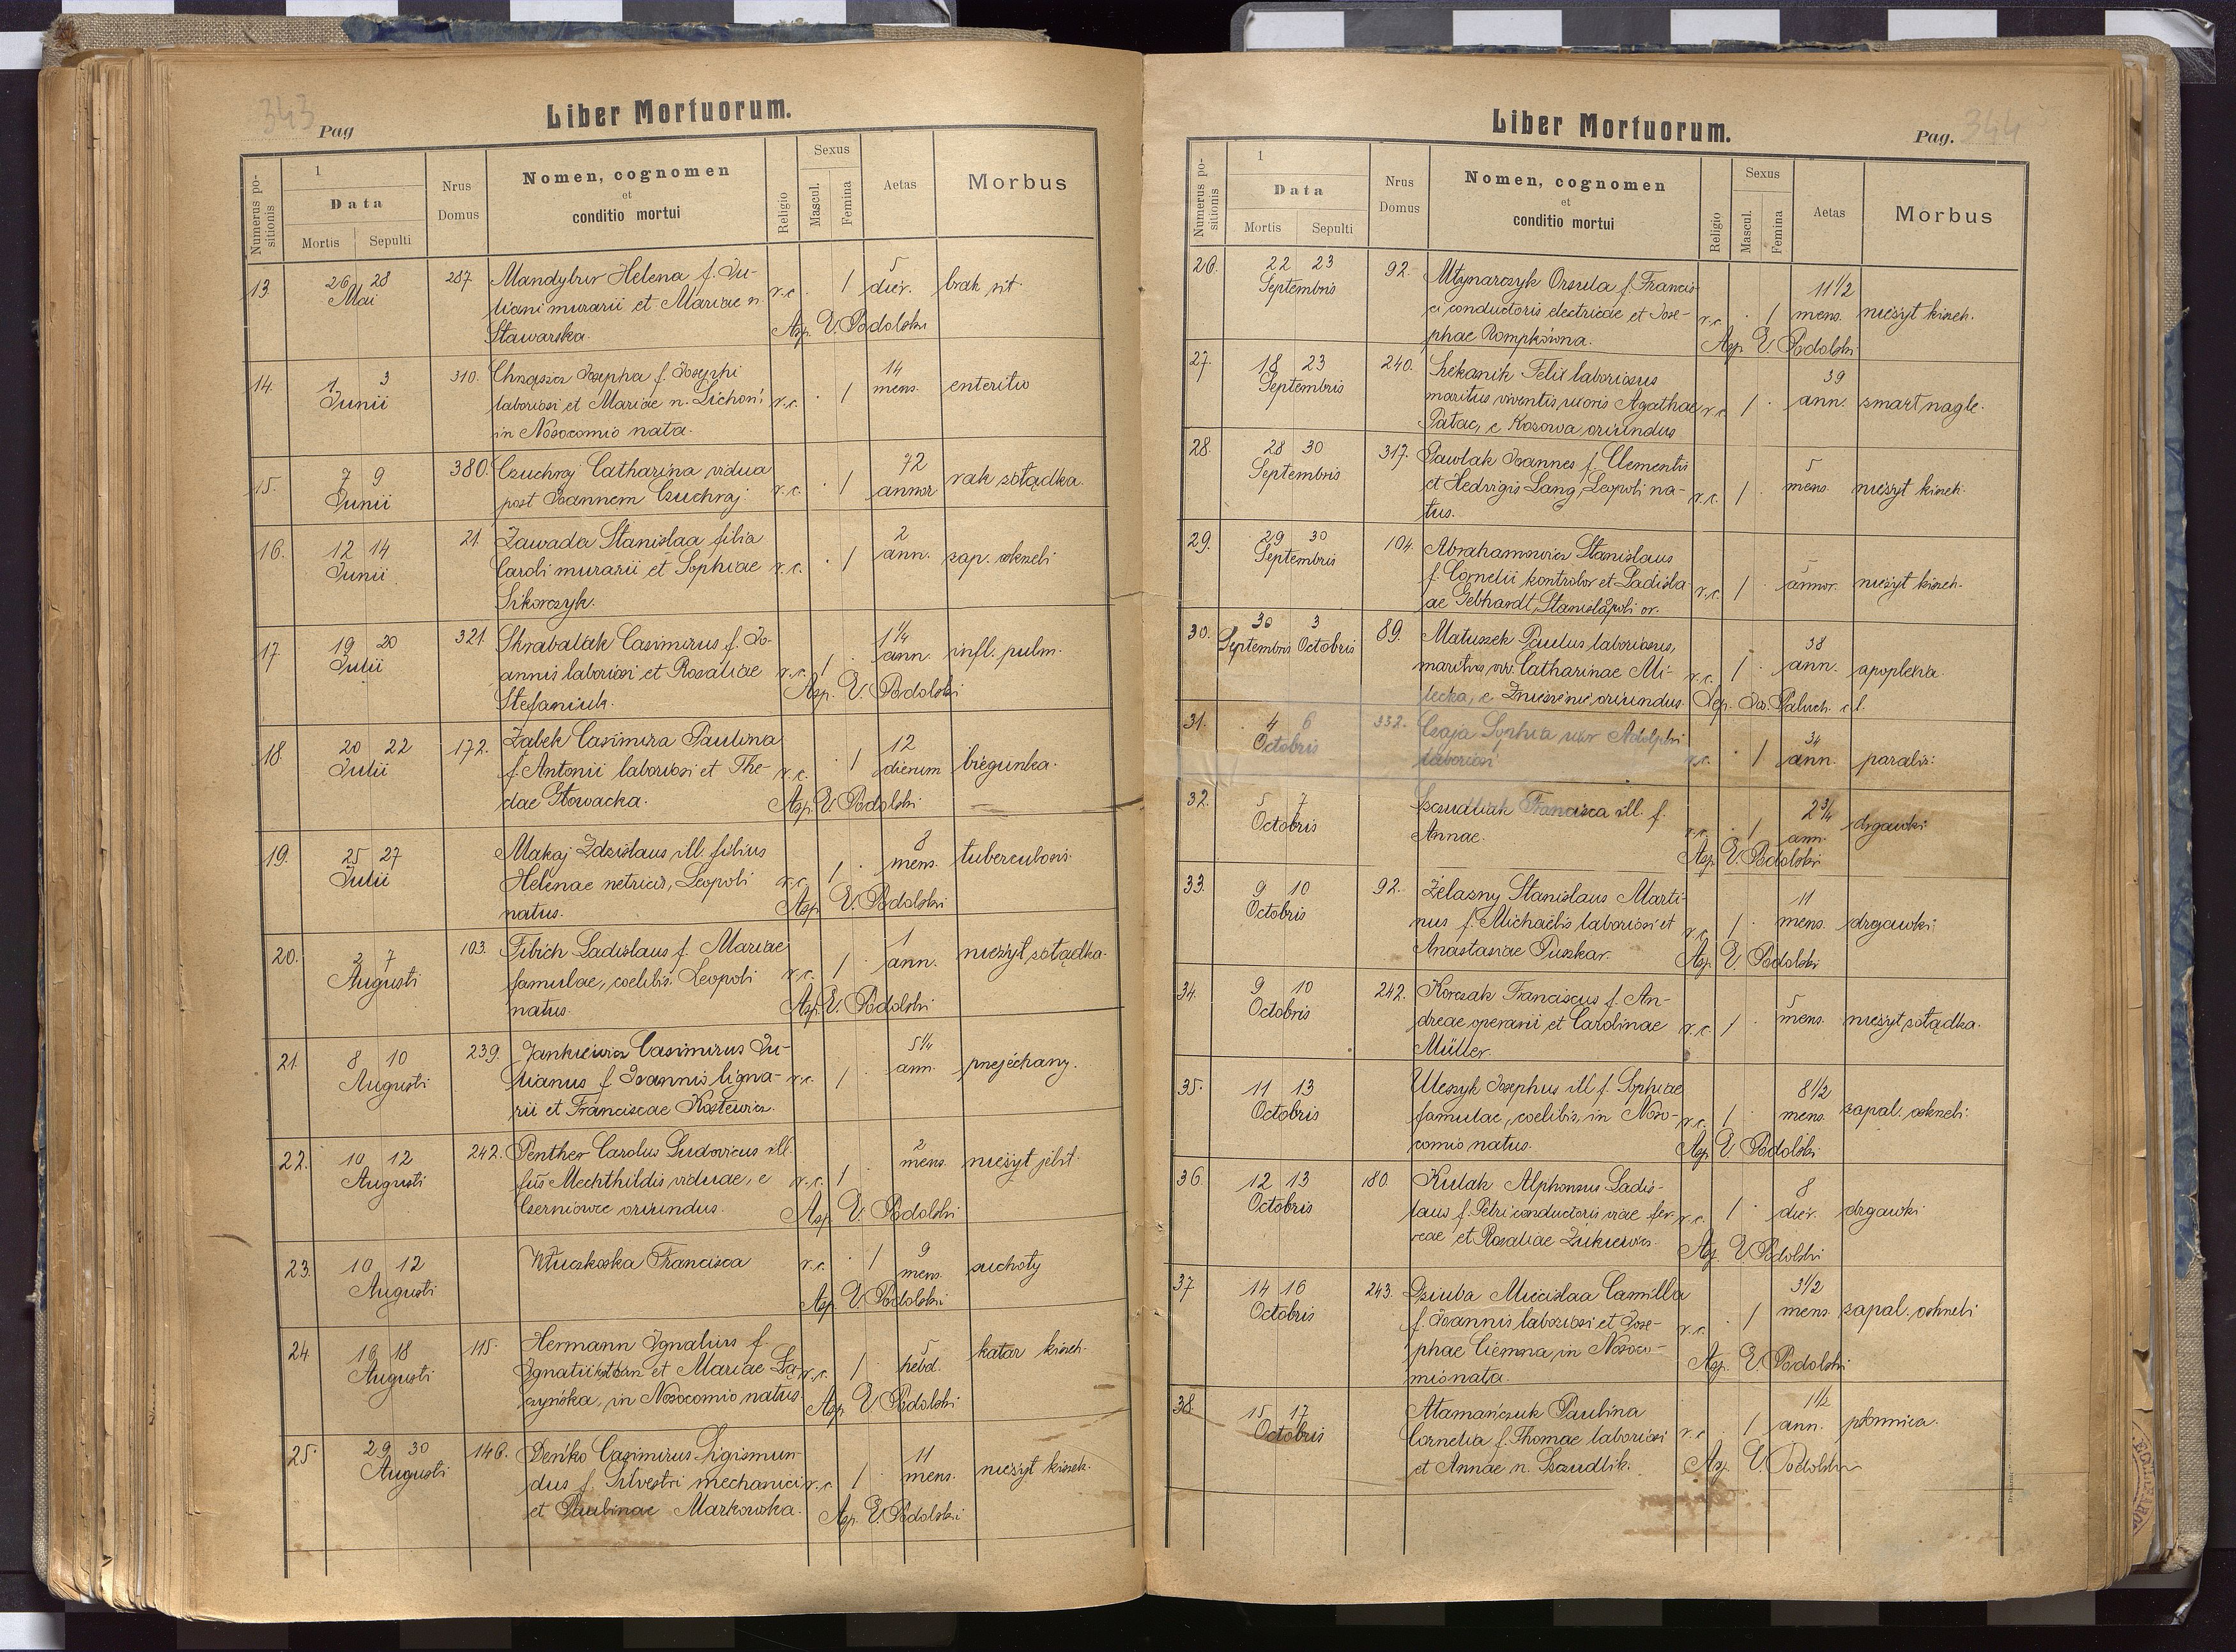 343
Pag
Liber Mortuorum.
Numerus positionis
1
Data
Mortis
Sepulti
Nrus Domus
Nomen, cognomen
et
conditio mortui
Religio
Sexus
Mascul.
Femina
Aetas
Morbus
13. 26 28 287 Mandybur Helena f. Ju- 5
Mai liani murarii et Mariae n. r.c. . 1 dier. brak sił.
Stawarska. Asp. V. Podolski
14. 1 3 310. Chrząszcz Josepha f. Josephi 14
Junii laboriosi et Mariae n. Lichoń r.c. . 1 mens. enteritis
in Nosocomio nata.
15. 7 9 380. Czuchraj Catharina vidua 72
Junii post Joannem Czuchraj. r.c. . 1 annor. rak żołądka.
16. 12 14 21. Zawada Stanislaa filia 2
Junii Caroli murarii et Sophiae r.c. . 1 ann. zap. oskrzeli
Sikorczyk.
17. 19 20 321. Skrabalak Casimirus f. Jo- 1 1/4
Julii annis laboriosi et Rosaliae r.c. 1 . ann. infl. pulm.
Stefaniuk. Asp. V. Podolski
18. 20 22 172. Ząbek Casimira Paulina 12
Julii f. Antonii laboriosi et The- r.c. . 1 dierum biegunka.
clae Głowacka. Asp. V. Podolski
19. 25 27 Makaj Zdzislaus ill. filius 8
Julii Helenae netricis, Leopoli r.c. 1 . mens. tuberculosis.
natus. Asp. V. Podolski
20. 3 7 103. Fibich Ladislaus f. Mariae 1
Augusti famulae, coelibis. Leopoli r.c. 1 . ann. nieżyt żołądka.
natus. Asp. V. Podolski
21. 8 10 239. Jankiewicz Casimirus Ju- 5 1/4
Augusti lianus f. Joannis ligna- r.c. 1 . ann. przejechany.
rii et Franciscae Kostewicz.
22. 10 12 242. Penther Carolus Ludovicus ill. 2
Augusti fius Mechthildis viduae, e r.c. 1 . mens. nieżyt jelit.
Czerniowce oriundus. Asp. V. Podolski
23. 10 12 Włuczkoska Francisca r.c. . 1 9
Augusti mens. suchoty
Asp. V. Podolski
24. 16 18 115. Hermann Ignatius f. 5
Augusti Ignatii et Mariae r.c. 1 . hebd. katar kiszek.
in Nosocomio natus. Asp. V. Podolski
25. 29 30 146. Deńko Casimirus Sigismun- 11
Augusti dus f. Silvestri mechanici r.c. 1 . mens. nieżyt kiszek.
et Paulinae Markowska. Asp. V. Podolski
Liber Mortuorum.
Pag. 344
Numerus positionis
1
Data
Mortis
Sepulti
Nrus Domus
Nomen, cognomen
et
conditio mortui
Religio
Sexus
Mascul.
Femina
Aetas
Morbus
26. 22 23 92. Młynarczyk Orsula f. Francis- 11 1/2
Septembris ci conductoris electricae et Jose- r.c. . 1 mens. nieżyt kiszek.
phae Rompkówna. Asp. V. Podolski
27. 18 23 240. Lekanik Felix laboriosus 39
Septembris maritus viventis uxoris Agathae r.c. 1 . ann. zmarł nagle.
Pałac, e Kozowa oriundus
28. 28 30 317. Pawlak Joannes f. Clementis 5
Septembris et Hedvigis Lang, Leopoli na- r.c. 1 . mens. nieżyt kiszek.
tus.
29. 29 30 104. Abrahamowicz Stanislaus
Septembris f. Cornelii kontrolor et Ladisla- r.c. 1 . annor. nieżyt kiszek.
ae Gebhardt, Stanislapoli or.
30. 30 3 89. Matuszek Paulus laboriosus, 38
Septembris Octobris maritus viv. Catharinae Mi- r.c. 1 . ann. apopleksia.
lecka, e Zniesienie oriundus. Sep. Jos. Paluch. c. l.
31. 4 6 332. Czaja Sophia uxor Adolphi 34
Octobris laboriosi r.c. . 1 ann. paraliż.
32. 5 7 Szczudluk Francisca ill. f. 2 3/4
Octobris Annae. r.c. . 1 ann. drgawki
Asp. V. Podolski
33. 9 10 92. Żelazny Stanislaus Marti- 11
Octobris nus f. Michaëlis laboriosi et r.c. 1 . mens. drgawki.
Anastasiae Puszkar. Asp. V. Podolski
34. 9 10 242. Korczak Franciscus f. An- 5
Octobris dreae operarii et Carolinae r.c. 1 . mens. nieżyt żołądka.
Müller.
35. 11 13 Uleszyk Josephus ill. f. Sophiae 8 1/2
Octobris famulae, coelibis, in Noso- r.c. 1 . mens. zapal. oskrzeli.
comio natus. Asp. V. Podolski
36. 12 13 180. Kulak Alphonsus Ladis- 8
Octobris laus f. Petri conductoris viae fer- r.c. 1 . dier. drgawki
reae et Rosaliae Żukiewicz. Asp. V. Podolski
37. 14 16 243. Dziuba Miecislaa Camilla 3 1/2
Octobris f. Joannis laboriosi et Jose- r.c. . 1 mens. zapal. oskrzeli
phae Ciemna, in Nosoco-
mio nata. Asp. V. Podolski
38. 15 17 Atamańczuk Paulina 1 1/2
Octobris Cornelia f. Thomae laboriosi r.c. . 1 ann. płonnica.
et Annae n. Szczudlik. Asp. V. Podolski